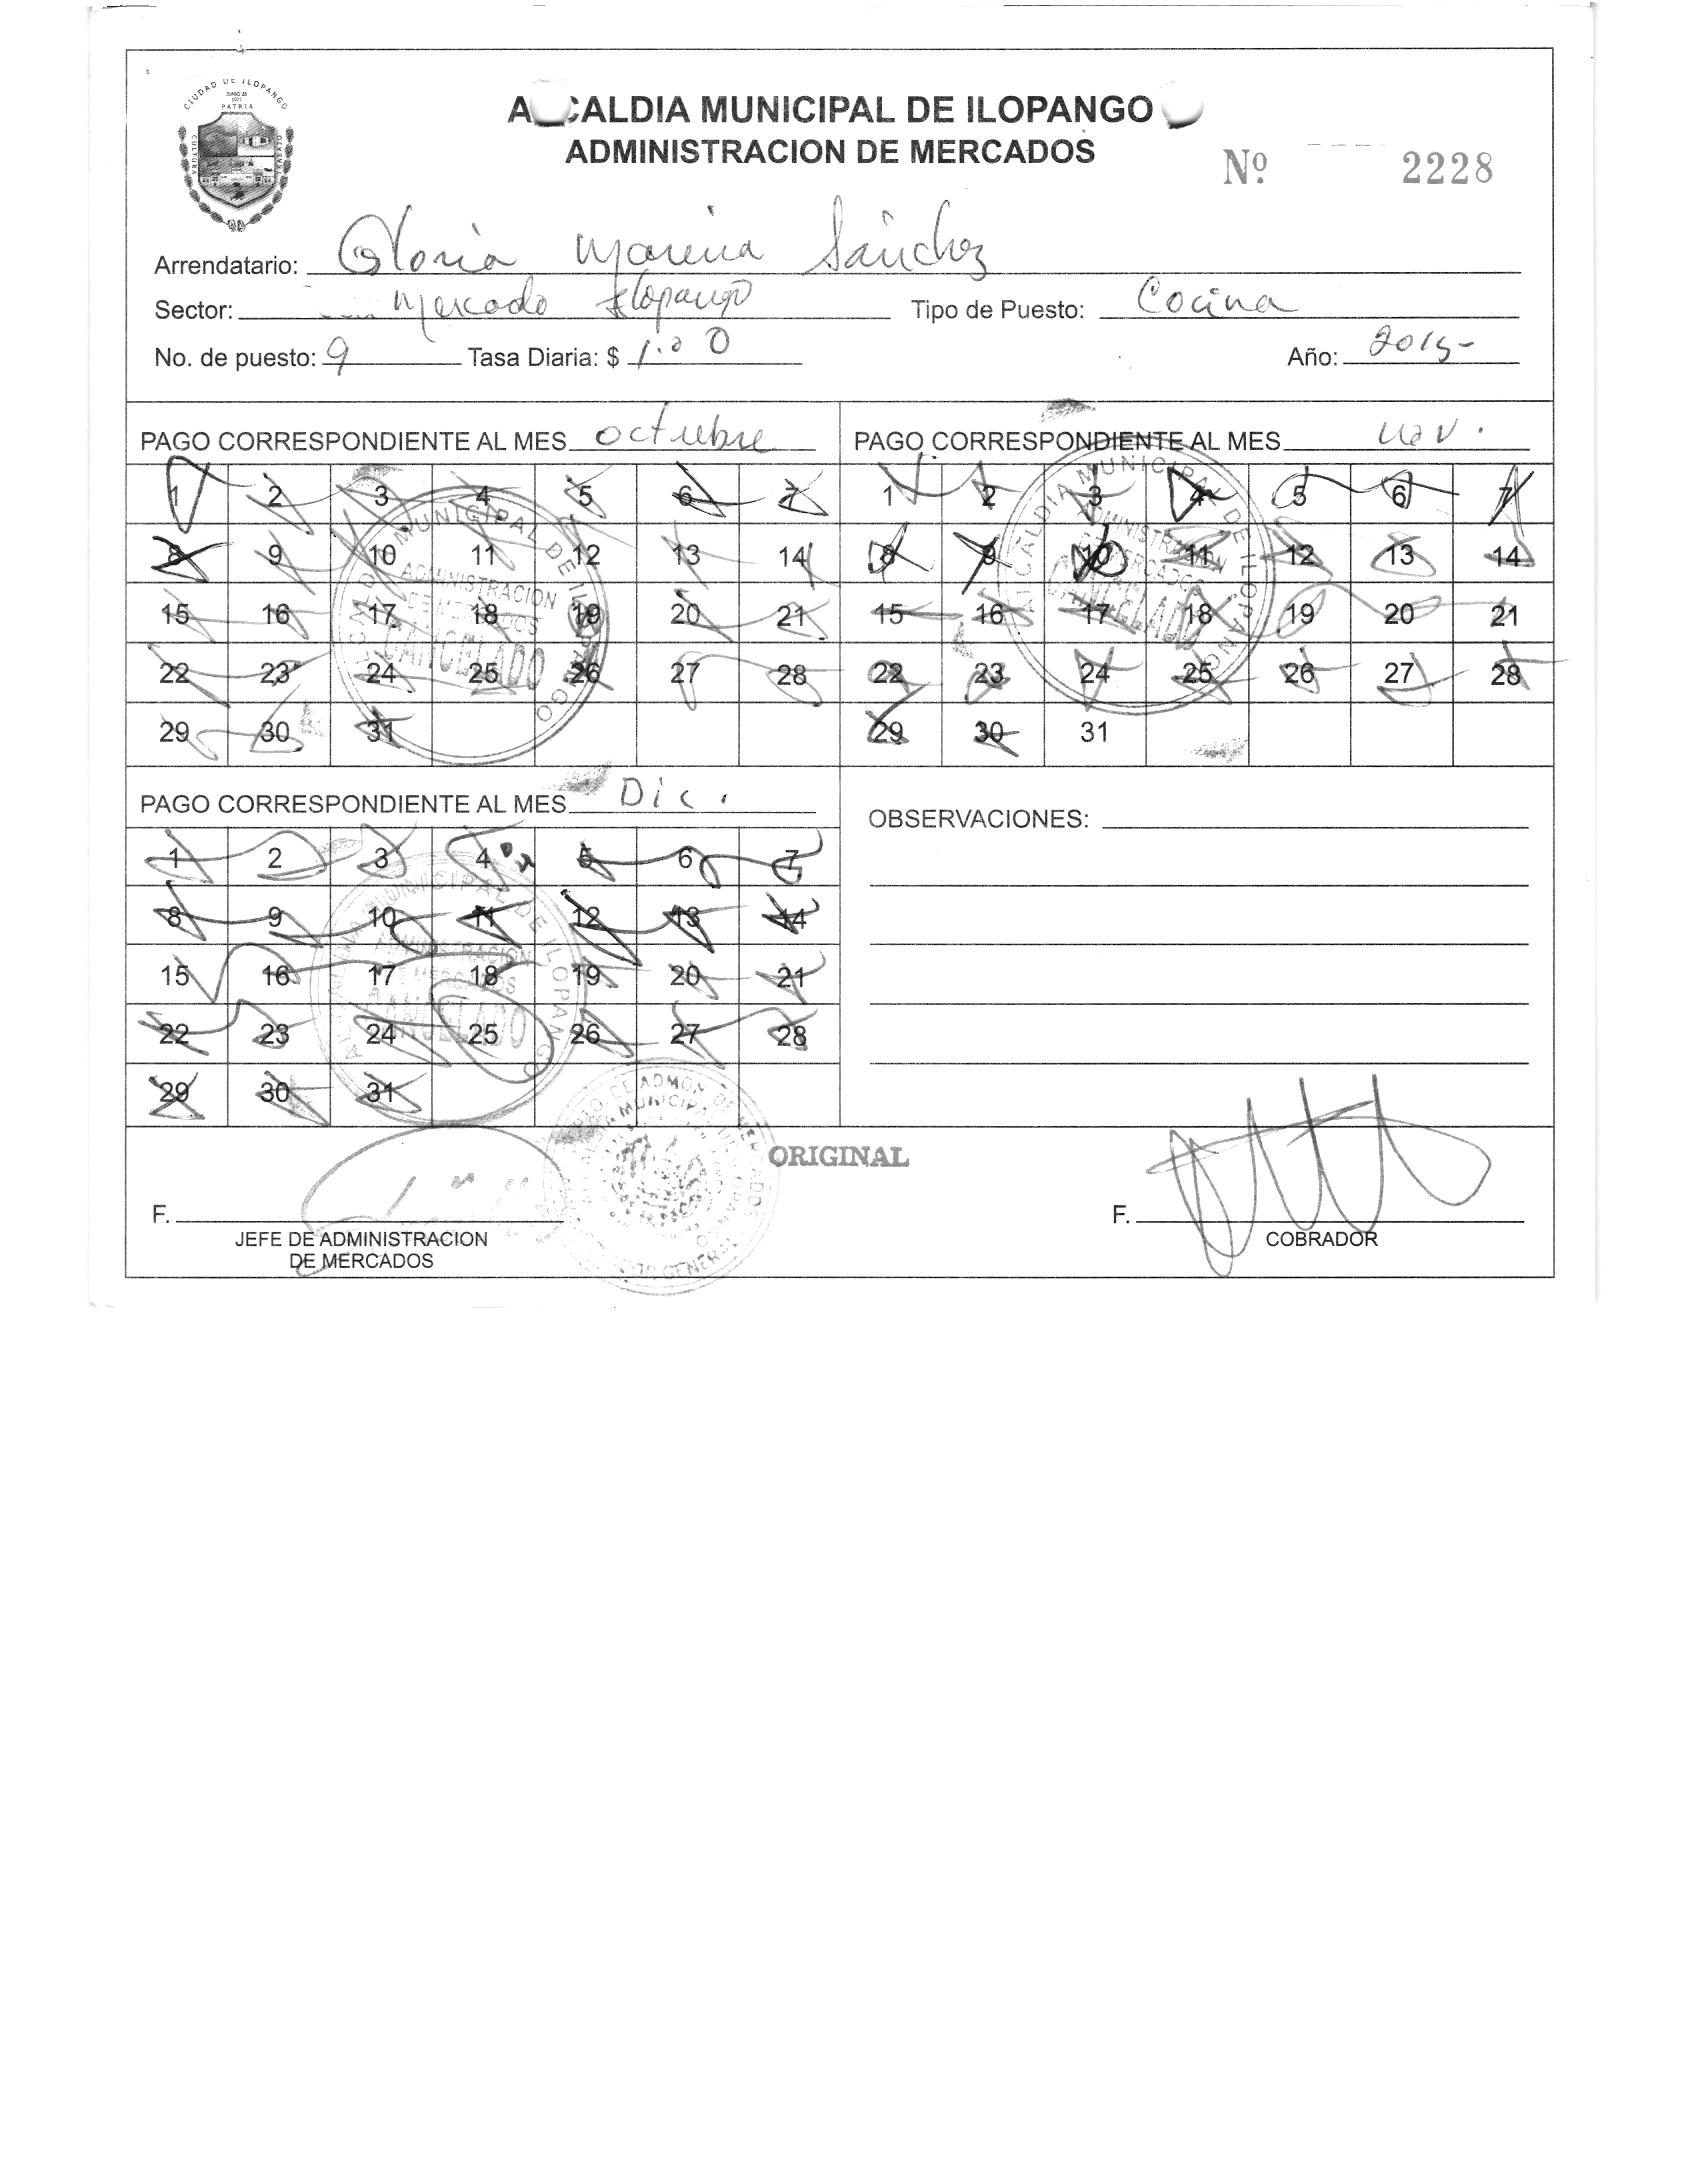 CIUDAD DE ILOPANGO
PATRIA
CULTURA
ALCALDIA MUNICIPAL DE ILOPANGO
ADMINISTRACION DE MERCADOS
Nº 2228
Arrendatario: Gloria Morena Sánchez
Sector: Mercado Ilopango Tipo de Puesto: Cocina
No. de puesto: 9 Tasa Diaria: $ 1.00 Año: 2015-
PAGO CORRESPONDIENTE AL MES octubre
1 2 3 4 5 6 7
8 9 10 11 12 13 14
15 16 17 18 19 20 21
22 23 24 25 26 27 28
29 30 31
ALCALDIA MUNICIPAL DE ILOPANGO
ADMINISTRACION
DE MERCADOS
CANCELADO
PAGO CORRESPONDIENTE AL MES Nov.
1 2 3 4 5 6 7
8 9 10 11 12 13 14
15 16 17 18 19 20 21
22 23 24 25 26 27 28
29 30 31
ALCALDIA MUNICIPAL DE ILOPANGO
ADMINISTRACION
DE MERCADOS
CANCELADO
PAGO CORRESPONDIENTE AL MES Dic.
1 2 3 4 5 6 7
8 9 10 11 12 13 14
15 16 17 18 19 20 21
22 23 24 25 26 27 28
29 30 31
ALCALDIA MUNICIPAL DE ILOPANGO
ADMINISTRACION
DE MERCADOS
CANCELADO
OBSERVACIONES:
ORIGINAL
F.
JEFE DE ADMINISTRACION
DE MERCADOS
F.
COBRADOR